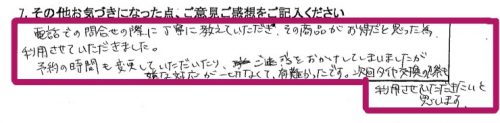 7. その他お気づきになった点、ご意見ご感想をご記入ください
電話での問合せの際に丁寧に教えていただき、その商品がお得だと思った為、
利用させていただきました。
予約の時間も変更していただいたり、ご迷惑をおかけしてしまいましたが
嫌な対応が一切なくて、有難かったです。次回タイヤ交換の際も
利用させていただきたいと
思います。